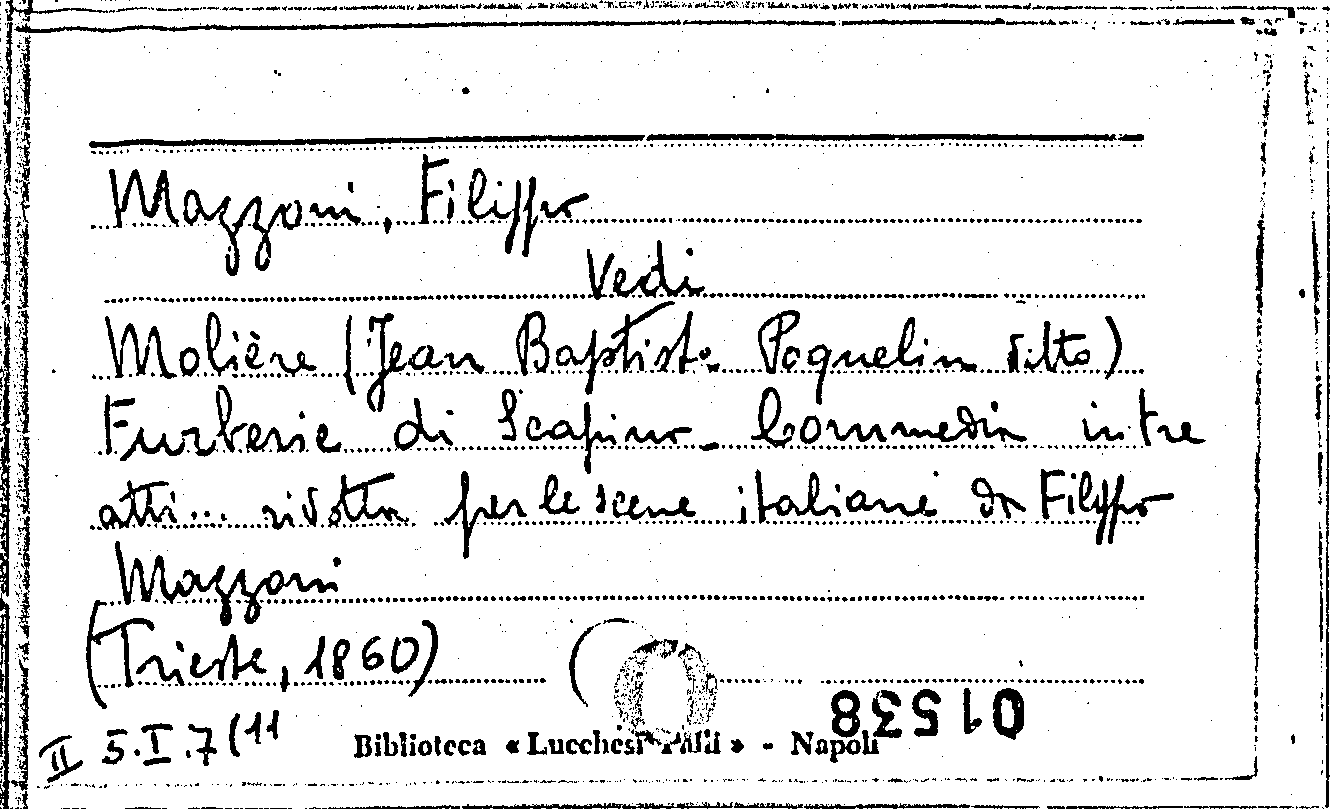 Mazzoni, Filippo
Vedi
Molière (Jean Baptiste Poquelin ditto)
Furberie di Scapino. Commedia in tre
atti... ridotta per le scene italiane da Filippo
Mazzoni
(Trieste, 1860)
01538
II 5.I.7(11
Biblioteca « Lucchesi Palli » - Napoli